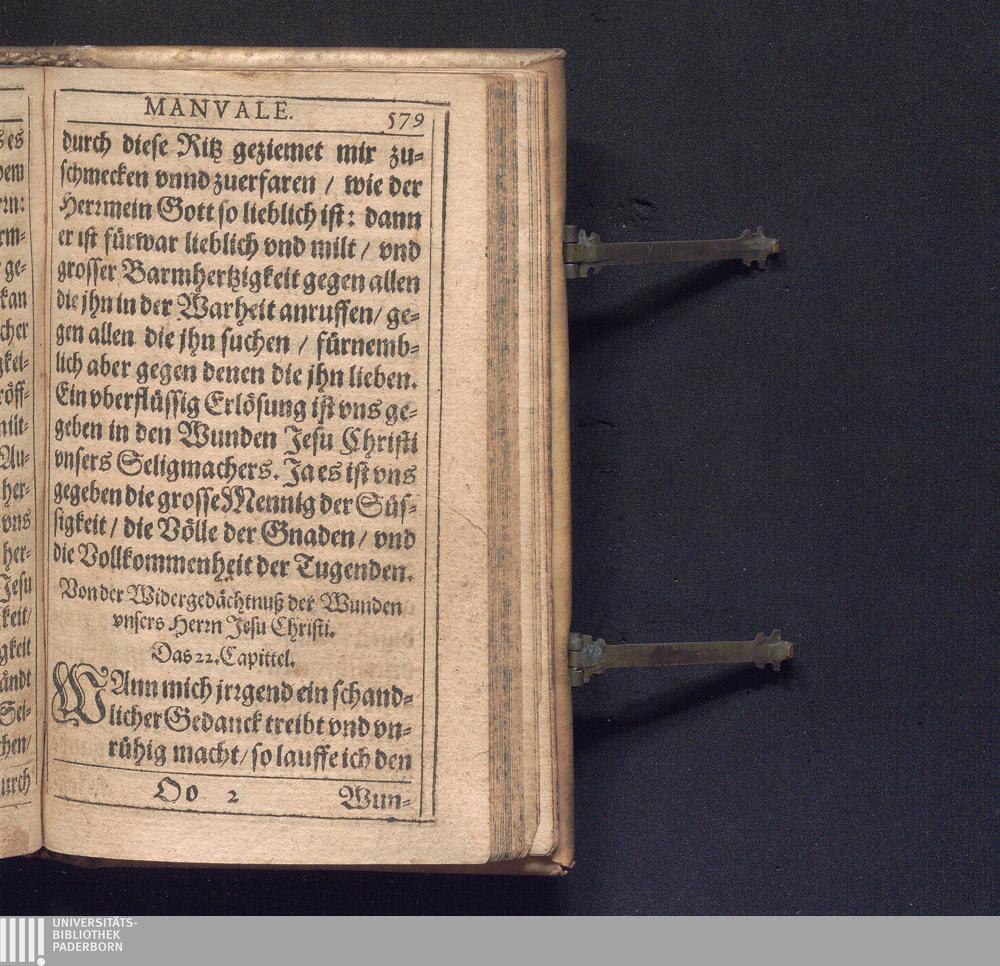 MANVALE. 579
durch diese Ritz geziemet mir zu-
schmecken vnnd zuerfaren / wie der
Herꝛ mein Gott so lieblich ist: dann
er ist fürwar lieblich vnd milt / vnd
grosser Barmhertzigkeit gegen allen
die jhn in der Warheit anruffen / ge-
gen allen die jhn suchen / fürnemb-
lich aber gegen denen die jhn lieben.
Ein vberflüssig Erlösung ist vns ge-
geben in den Wunden Jesu Christi
vnsers Seligmachers. Ja es ist vns
gegeben die grosse Mennig der Süs-
sigkeit / die Völle der Gnaden / vnd
die Vollkommenheit der Tugenden.
Von der Widergedächtnuß der Wunden
vnsers Herꝛn Jesu Christi.
Das 22. Capittel.
WAnn mich jrꝛgend ein schand-
licher Gedanck treibt vnd vn-
rühig macht / so lauffe ich den
Oo 2 Wun-
UNIVERSITÄTS-
BIBLIOTHEK
PADERBORN